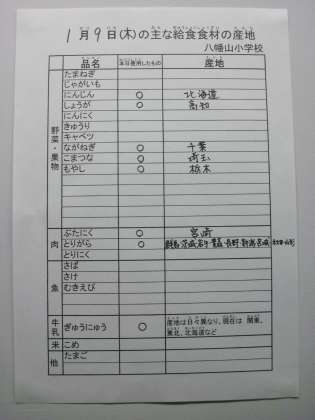 1月9日(木)の主な給食食材の産地
八幡山小学校
品名 本日使用したもの 産地
野菜・果物
たまねぎ
じゃがいも
にんじん ○ 北海道
しょうが ○ 高知
にんにく
きゅうり
キャベツ
ながねぎ ○ 千葉
こまつな ○ 埼玉
もやし ○ 栃木
肉
ぶたにく ○ 宮崎
とりがら ○ 群馬 茨城 岩手 青森 長野 新潟 宮城
とりにく
魚
さば
さけ
むきえび
牛乳
ぎゅうにゅう ○ 産地は日々異なり、現在は 関東、
東北、北海道など
米 こめ
他 たまご